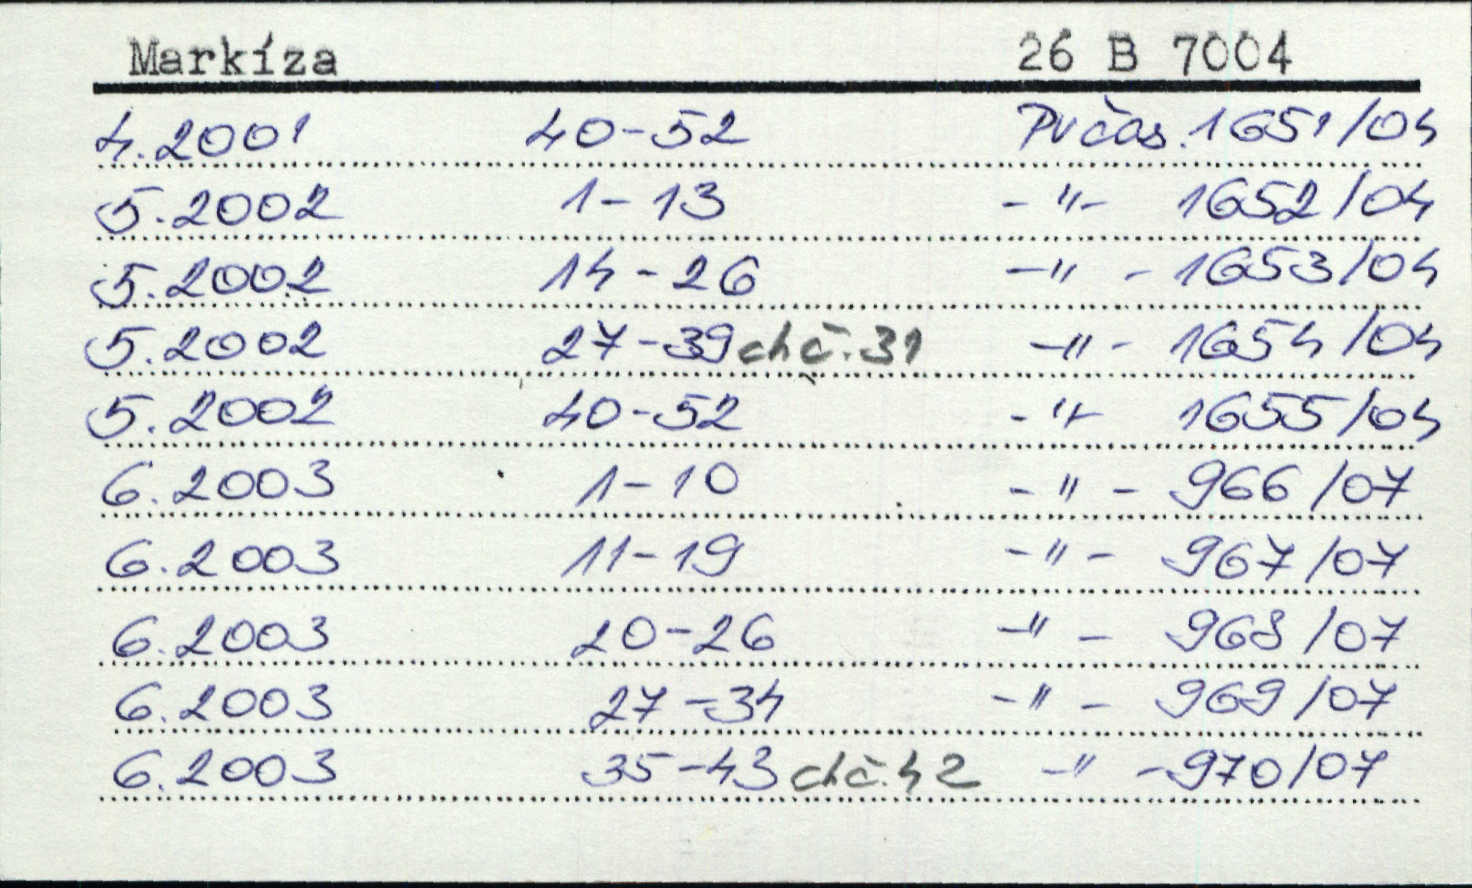 Markíza 26 B 7004
4.2001 40-52 PV čas. 1651/04
5.2002 1-13 -"- 1652/04
5.2002 14-26 -"- 1653/04
5.2002 27-39 ch č. 31 -"- 1654/04
5.2002 40-52 -"- 1655/04
6.2003 1-10 -"- 966/07
6.2003 11-19 -"- 967/07
6.2003 20-26 -"- 968/07
6.2003 27-34 -"- 969/07
6.2003 35-43 ch č. 42 -"- 970/07